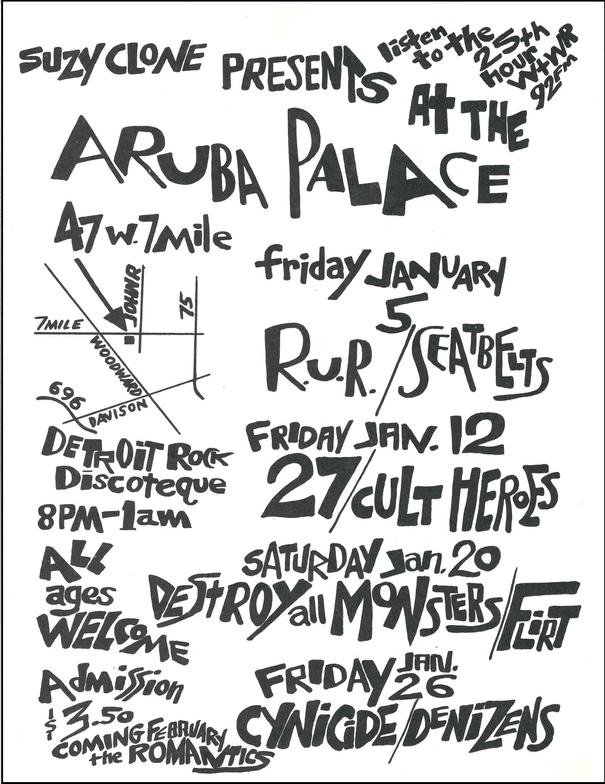 SUZY CLONE PRESENTS
listen to the
25th
hour
W4WR
92FM
At THE
ARUBA PALACE
47 W. 7 Mile
JOHN R
75
7 MILE
WOODWARD
696
DAVISON
DETROIT ROCK
Discoteque
8PM-1am
ALL
ages
WELCOME
Admission
$3.50
COMING FEBRUARY
the ROMANTICS
friday JANUARY
5
R.U.R./SEATBELTS
FRIDAY JAN. 12
27/CULT HEROES
SATURDAY Jan. 20
DEStROY all MONSTERS/FLiRT
FRIDAY JAN.
26
CYNICIDE/DENIZENS